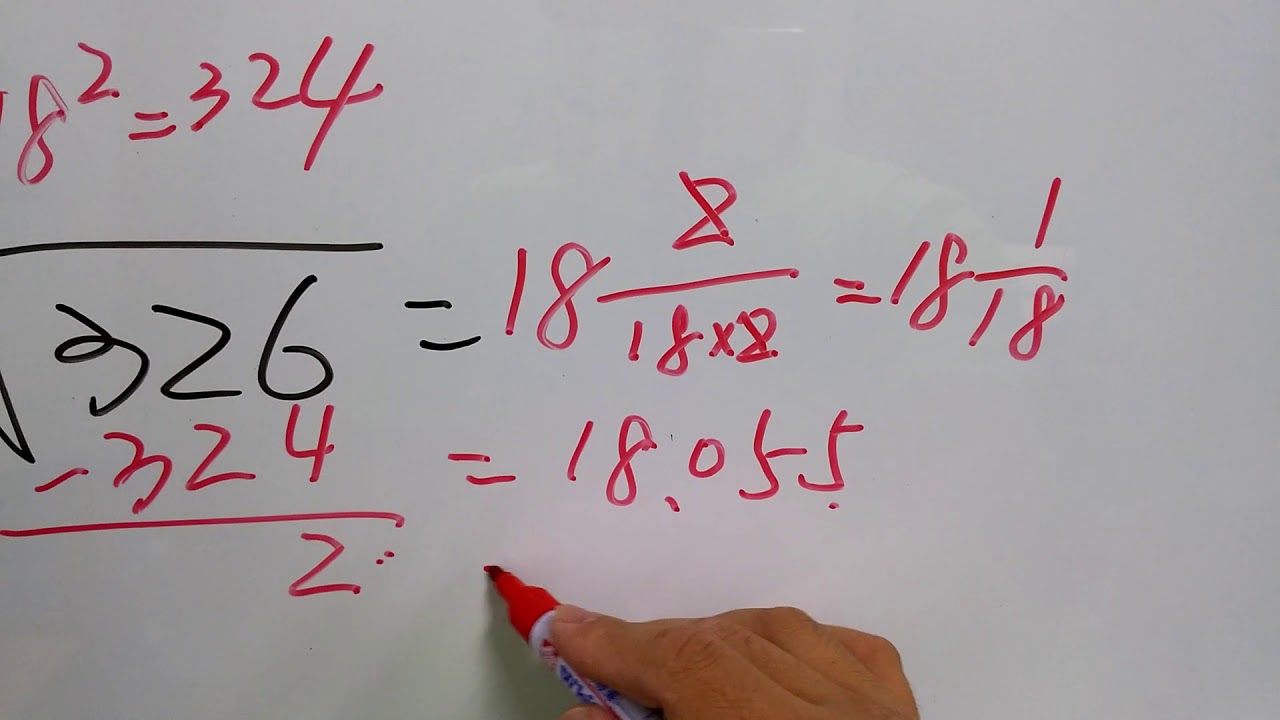 18² = 324
√326 = 18 2/(18×2) = 18 1/18
-324 = 18.055
2